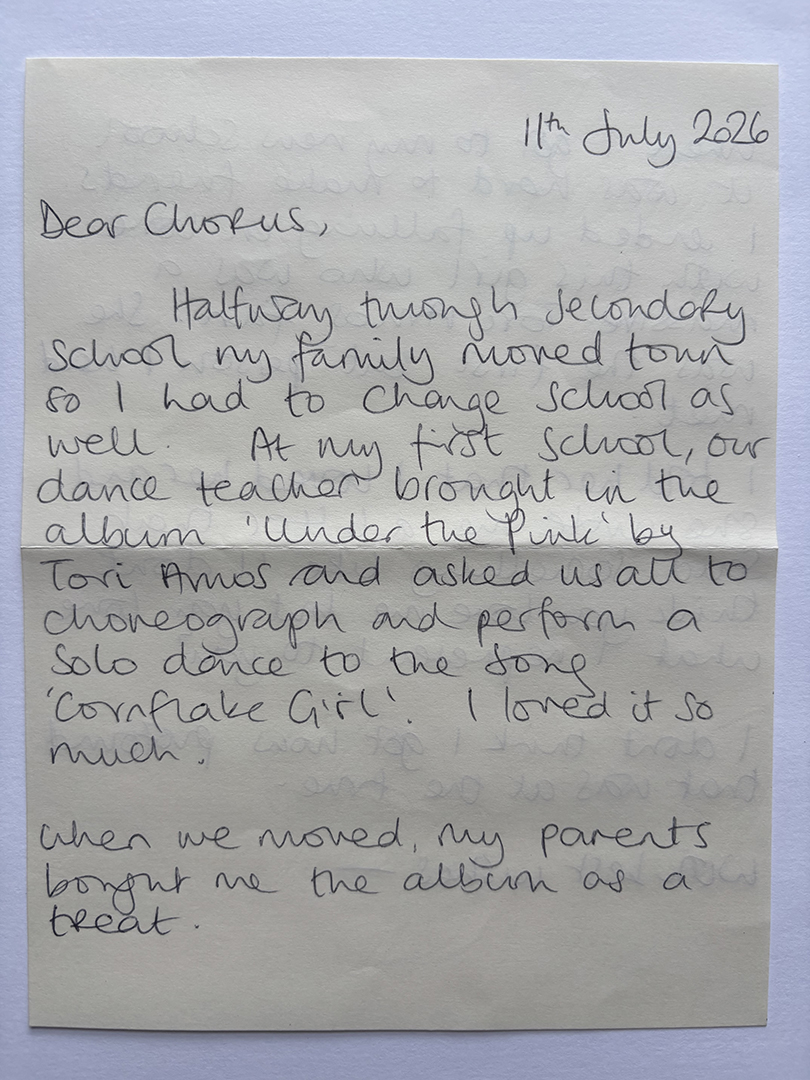 11th July 2026
Dear Chorus,
Halfway through secondary
school my family moved town
so I had to change school as
well. At my first school, our
dance teacher brought in the
album 'Under the Pink' by
Tori Amos and asked us all to
choreograph and perform a
solo dance to the song
'Cornflake Girl'. I loved it so
much.
When we moved, my parents
bought me the album as a
treat.